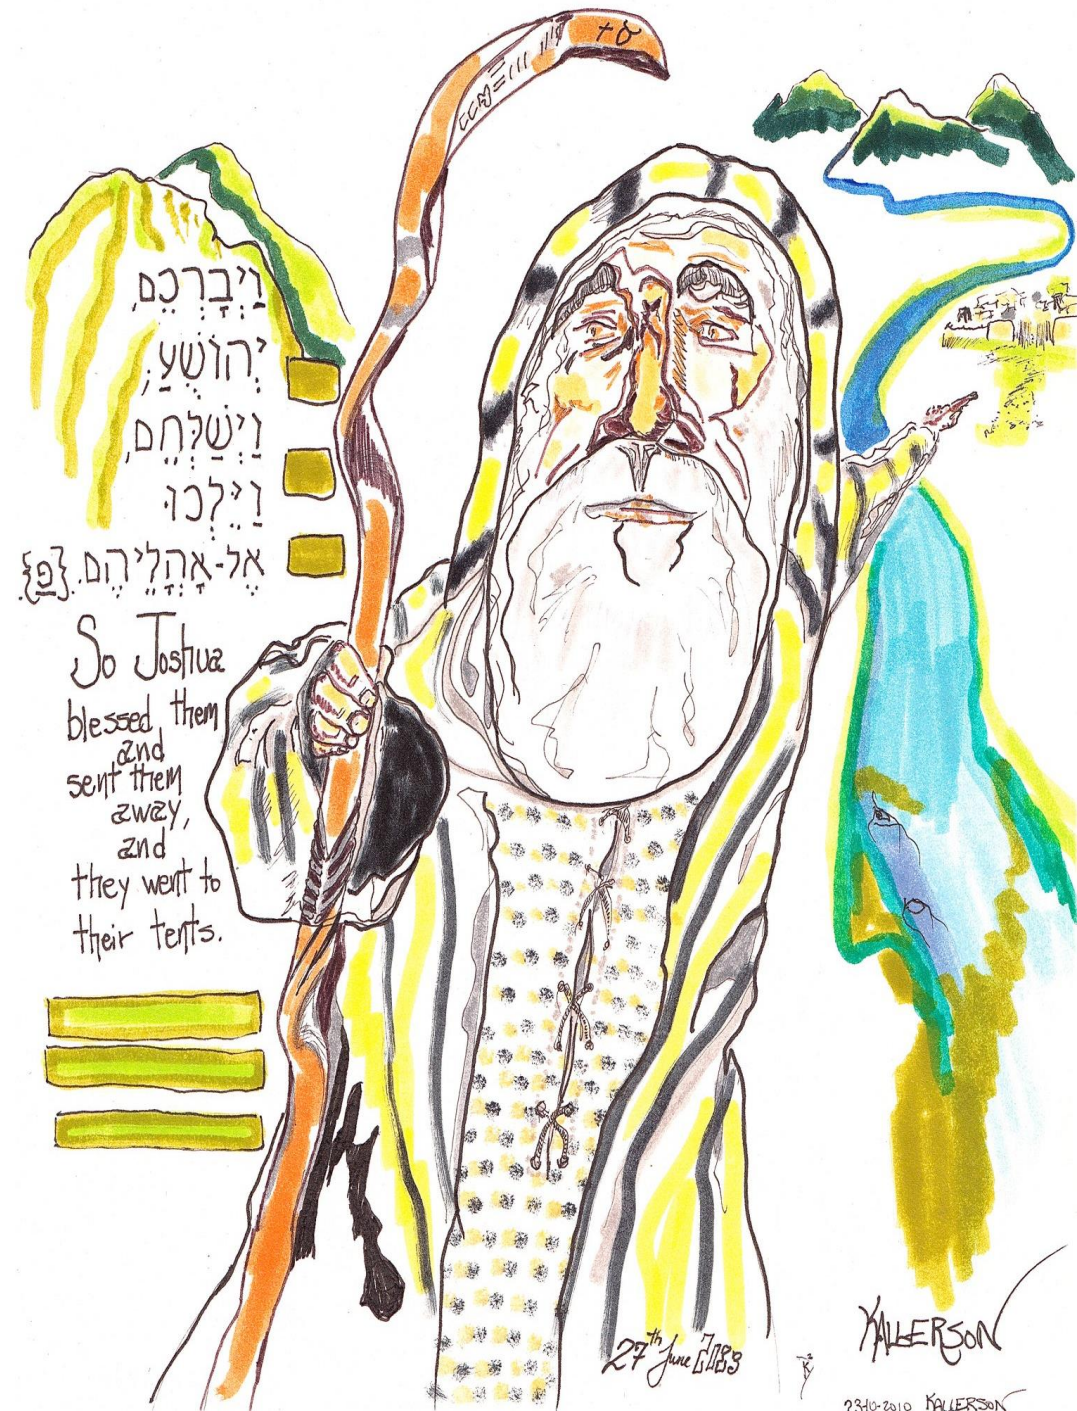 וַיְבָרְכֵם,
יְהוֹשֻׁעַ;
וַיְשַׁלְּחֵם,
וַיֵּלְכוּ
אֶל-אָהֳלֵיהֶם. {פ}.
So Joshua
blessed them
and
sent them
away,
and
they went to
their tents.
27th June
KALLERSON
23-10-2010 KALLERSON